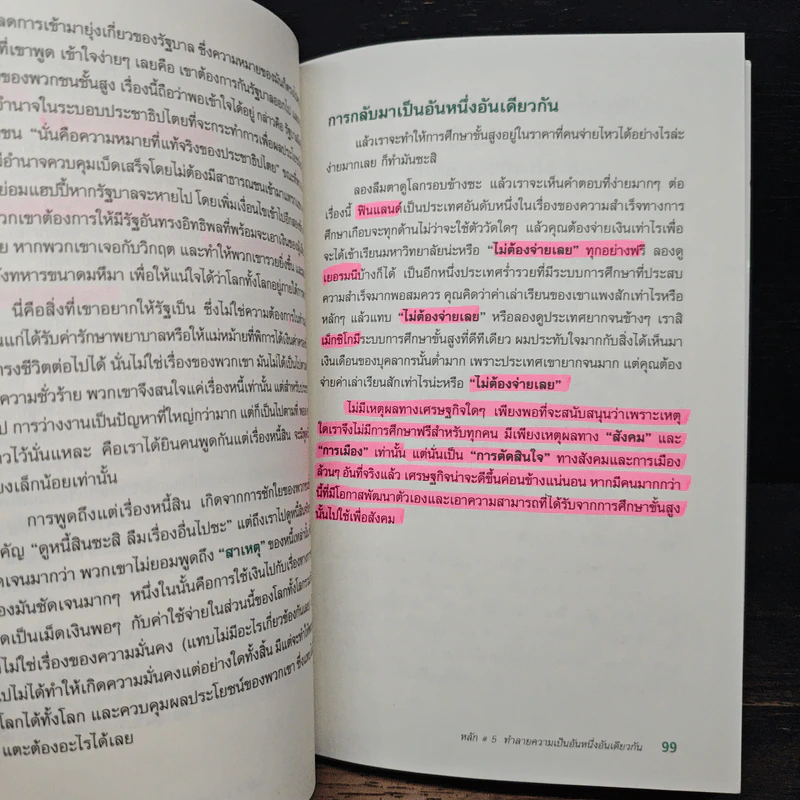 ลดการเข้ามายุ่งเกี่ยวของรัฐบาล ซึ่งความหมายของมันก็
ที่เขาพูด เข้าใจง่ายๆ เลยคือ เขาต้องการกันรัฐบาลออกไป
ของพวกชนชั้นสูง เรื่องนี้ถือว่าพอเข้าใจได้อยู่ กล่าวคือ รัฐ
อำนาจในระบอบประชาธิปไตยที่จะกระทำการเพื่อผลประโยชน์
ชน “นั่นคือความหมายที่แท้จริงของประชาธิปไตย”
มีอำนาจควบคุมเบ็ดเสร็จโดยไม่ต้องมีสาธารณชนเข้ามา
ย่อมแฮปปี้หากรัฐบาลจะหายไป โดยเพิ่มเงื่อนไขเข้าไป
พวกเขาต้องการให้มีรัฐอันทรงอิทธิพลที่พร้อมจะเอาเงิน
หากพวกเขาเจอกับวิกฤต และทำให้พวกเขารวยยิ่งขึ้น
ทหารขนาดมหึมา เพื่อให้แน่ใจได้ว่าโลกทั้งโลกอยู่ภายใต้การ
นี่คือสิ่งที่เขาอยากให้รัฐเป็น ซึ่งไม่ใช่ความต้องการใน
แก่ได้รับค่ารักษาพยาบาลหรือให้แม่หม้ายที่พิการได้เงิน
ชีวิตต่อไปได้ นั่นไม่ใช่เรื่องของพวกเขา มันไม่ได้เป็น
ความชั่วร้าย พวกเขาจึงสนใจแค่เรื่องหนี้เท่านั้น แต่สำหรับ
การว่างงานเป็นปัญหาที่ใหญ่กว่ามาก แต่ก็เป็นไปตามที่
ไว้นั่นแหละ คือเราได้ยินคนพูดกันแต่เรื่องหนี้สิน
เล็กน้อยเท่านั้น
การพูดถึงแต่เรื่องหนี้สิน เกิดจากการชักใยของพวก
คัญ “ดูหนี้สินซะสิ ลืมเรื่องอื่นไปซะ” แต่ถึงเราไปดูหนี้สิน
ชัดเจนมากว่า พวกเขาไม่ยอมพูดถึง “สาเหตุ” ของหนี้เหล่านั้น
ของมันชัดเจนมากๆ หนึ่งในนั้นคือการใช้เงินไปกับเรื่องทาง
คิดเป็นเม็ดเงินพอๆ กับค่าใช้จ่ายในส่วนนี้ของโลกทั้งโลก
ไม่ใช่เรื่องของความมั่นคง (แทบไม่มีอะไรเกี่ยวข้องกันเลย
ไปไม่ได้ทำให้เกิดความมั่นคงแต่อย่างใดทั้งสิ้น มีแต่จะทำให้
โลกได้ทั้งโลก และควบคุมผลประโยชน์ของพวกเขา
แตะต้องอะไรได้เลย
การกลับมาเป็นอันหนึ่งอันเดียวกัน
แล้วเราจะทำให้การศึกษาชั้นสูงอยู่ในราคาที่คนจ่ายไหวได้อย่างไรล่ะ
ง่ายมากเลย ก็ทำมันซะสิ
ลองลืมตาดูโลกรอบข้างซะ แล้วเราจะเห็นคำตอบที่ง่ายมากๆ ต่อ
เรื่องนี้ ฟินแลนด์เป็นประเทศอันดับหนึ่งในเรื่องของความสำเร็จทางการ
ศึกษาเกือบจะทุกด้านไม่ว่าจะใช้ตัววัดใดๆ แล้วคุณต้องจ่ายเงินเท่าไรเพื่อ
จะได้เข้าเรียนมหาวิทยาลัยน่ะหรือ “ไม่ต้องจ่ายเลย” ทุกอย่างฟรี ลองดู
เยอรมนีบ้างก็ได้ เป็นอีกหนึ่งประเทศร่ำรวยที่มีระบบการศึกษาที่ประสบ
ความสำเร็จมากพอสมควร คุณคิดว่าค่าเล่าเรียนของเขาแพงสักเท่าไรหรือ
หลักๆ แล้วแทบ “ไม่ต้องจ่ายเลย” หรือลองดูประเทศยากจนข้างๆ เราสิ
เม็กซิโกมีระบบการศึกษาชั้นสูงที่ดีทีเดียว ผมประทับใจมากกับสิ่งได้เห็นมา
เงินเดือนของบุคลากรนั้นต่ำมาก เพราะประเทศเขายากจนมาก แต่คุณต้อง
จ่ายค่าเล่าเรียนสักเท่าไรน่ะหรือ “ไม่ต้องจ่ายเลย”
ไม่มีเหตุผลทางเศรษฐกิจใดๆ เพียงพอที่จะสนับสนุนว่าเพราะเหตุ
ใดเราจึงไม่มีการศึกษาฟรีสำหรับทุกคน มีเพียงเหตุผลทาง “สังคม” และ
“การเมือง” เท่านั้น แต่นั่นเป็น “การตัดสินใจ” ทางสังคมและการเมือง
ล้วนๆ อันที่จริงแล้ว เศรษฐกิจน่าจะดีขึ้นค่อนข้างแน่นอน หากมีคนมากกว่า
นี้ที่มีโอกาสพัฒนาตัวเองและเอาความสามารถที่ได้รับจากการศึกษาชั้นสูง
นั้นไปใช้เพื่อสังคม
หลัก # 5 ทำลายความเป็นอันหนึ่งอันเดียวกัน 99